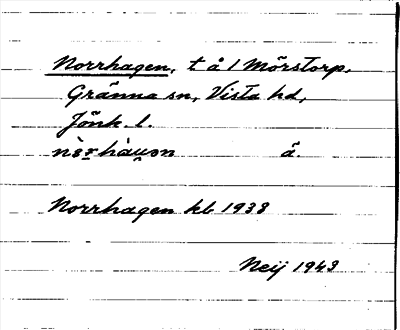 Norrhagen, t å 1 Mörstorp,
Gränna sn, Vista hd,
Jönk. l.
å.
Norrhagen kb 1938
Neij 1943